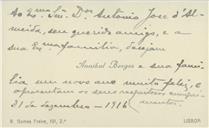 Ao Ex.mo Snr. D. Antonio José d'Al-
meida, seu querido amigo, e a
sua Ex.ma familia, desejam
Annibal Borges e sua fami-
lia um novo ano muito feliz, e
apresentam os seus respeitosos cumpri-
mentos.
31 dezembro - 1916
R. Gomes Freire, 191, 2.º
LISBOA